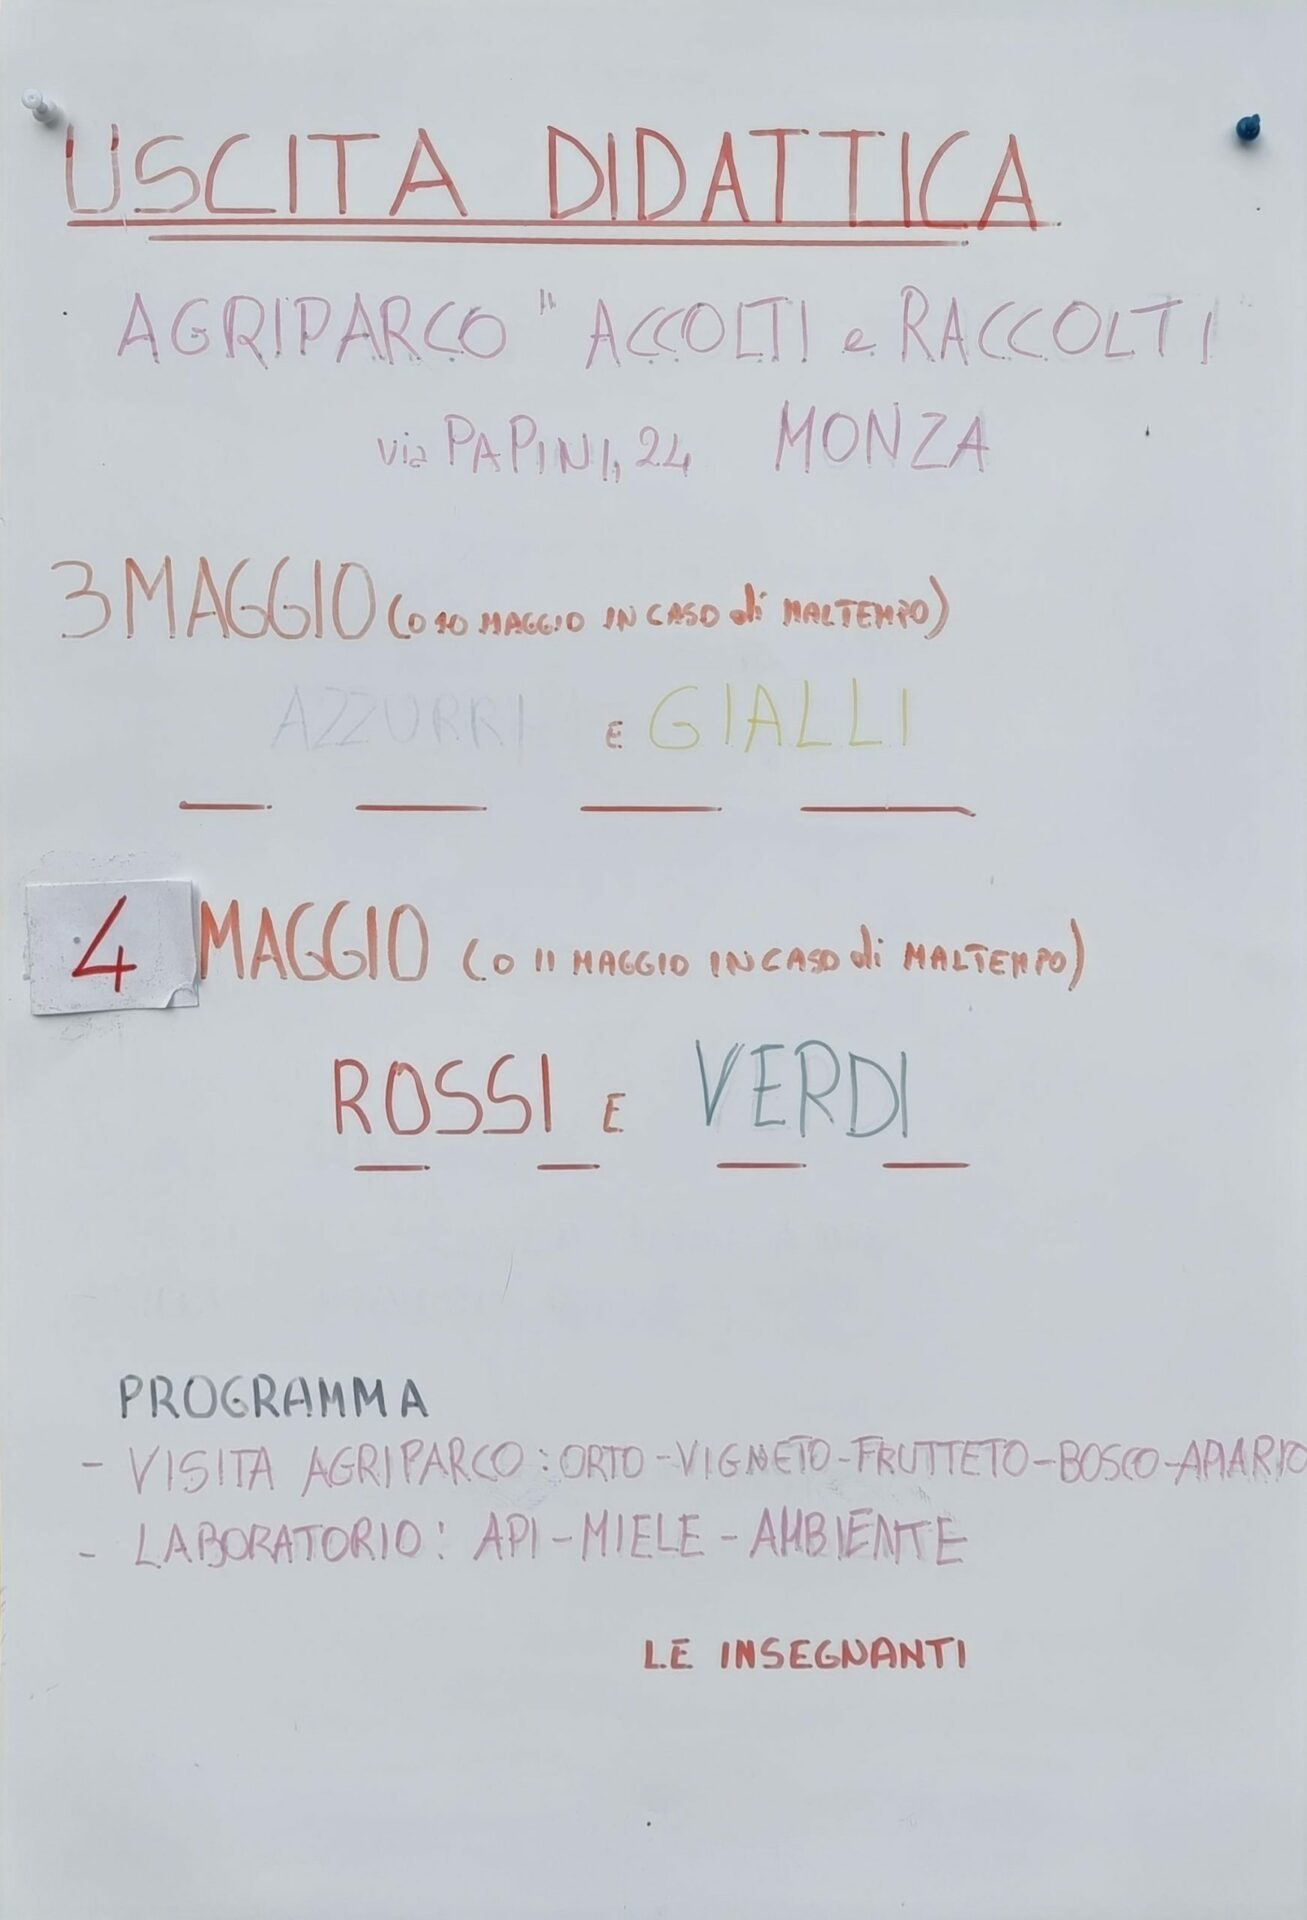 USCITA DIDATTICA
AGRIPARCO "ACCOLTI e RACCOLTI"
via PAPINI, 24 MONZA
3 MAGGIO (O 10 MAGGIO IN CASO di MALTEMPO)
AZZURRI E GIALLI
4 MAGGIO (O 11 MAGGIO IN CASO di MALTEMPO)
ROSSI E VERDI
PROGRAMMA
- VISITA AGRIPARCO: ORTO-VIGNETO-FRUTTETO-BOSCO-APIARIO
- LABORATORIO: API-MIELE-AMBIENTE
LE INSEGNANTI